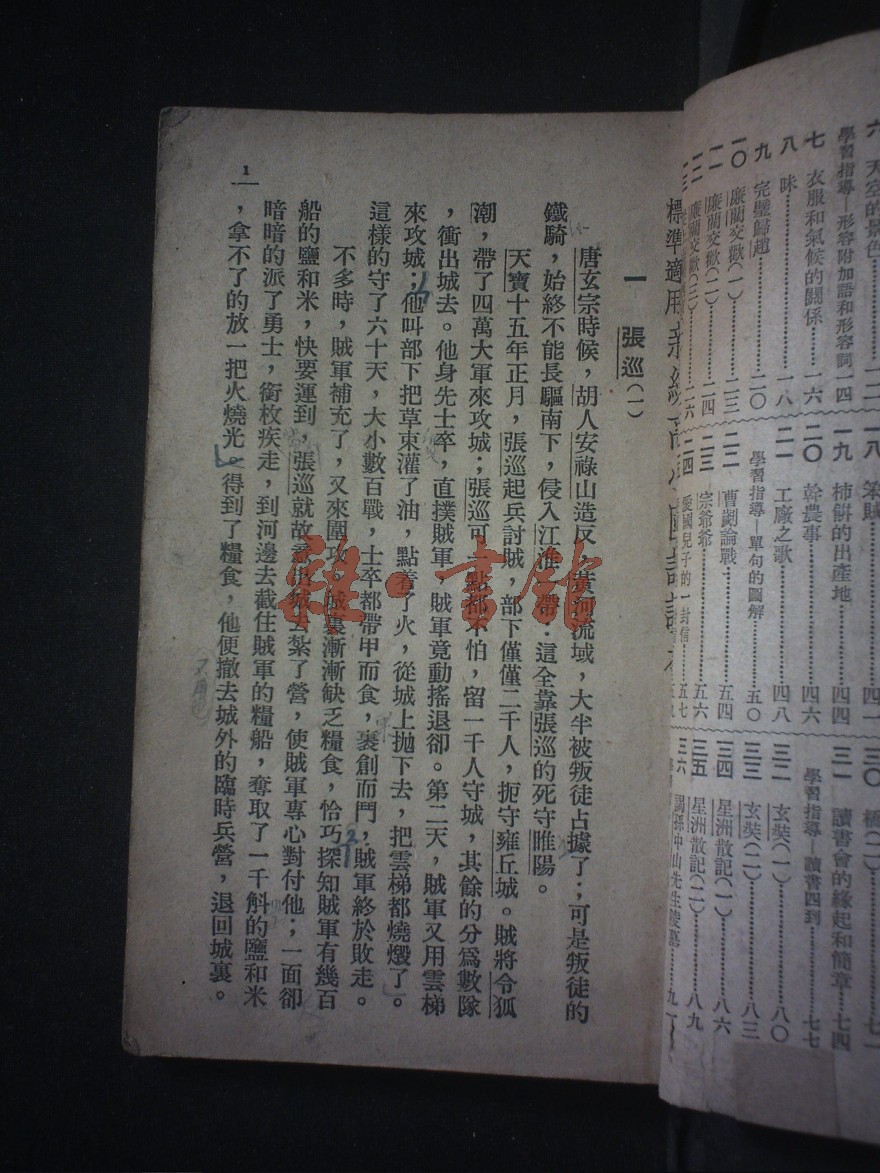 六　天空的景色……一二
學習指導—形容附加語和形容詞 一四
七　衣服和氣候的關係……一六
八　味……一八
九　完璧歸趙……二〇
一〇　廉藺交歡(一)……二三
一一　廉藺交歡(二)……二四
一二　廉藺交歡(三)……二六
一八　笨賊……四一
一九　柿餅的出產地……四四
二〇　幹農事……四六
二一　工廠之歌……四八
學習指導—單句的圖解……五〇
二二　曹劌論戰……五四
二三　宗爺爺……五六
二四　愛國兒子的一封信……五七
三〇　橋(二)
三一　讀書會的緣起和簡章……七四
學習指導—讀書四到……七七
三二　玄奘(一)……八〇
三三　玄奘(二)……八三
三四　星洲散記(一)……八六
三五　星洲散記(二)……八九
三六　謁孫中山先生陵墓……九一
標準適用
一　張巡(一)
唐玄宗時候，胡人安祿山造反，黃河流域，大半被叛徒占據了；可是叛徒的
鐵騎，始終不能長驅南下，侵入江淮一帶：這全靠張巡的死守睢陽。
天寶十五年正月，張巡起兵討賊，部下僅僅二千人，扼守雍丘城。賊將令狐
潮，帶了四萬大軍來攻城；張巡可一點都不怕，留一千人守城，其餘的分爲數隊
，衝出城去。他身先士卒，直撲賊軍，賊軍竟動搖退卻。第二天，賊軍又用雲梯
來攻城；他叫部下把草束灌了油，點着了火，從城上拋下去，把雲梯都燒燬了。
這樣的守了六十天，大小數百戰，士卒都帶甲而食，裹創而鬥，賊軍終於敗走。
不多時，賊軍補充了，又來圍攻。城裏漸漸缺乏糧食，恰巧探知賊軍有幾百
船的鹽和米，快要運到，張巡就故意出城去紮了營，使賊軍專心對付他；一面卻
暗暗的派了勇士，銜枚疾走，到河邊去截住賊軍的糧船，奪取了一千斛的鹽和米
，拿不了的放一把火燒光。得到了糧食，他便撤去城外的臨時兵營，退回城裏。
1
雜·書館